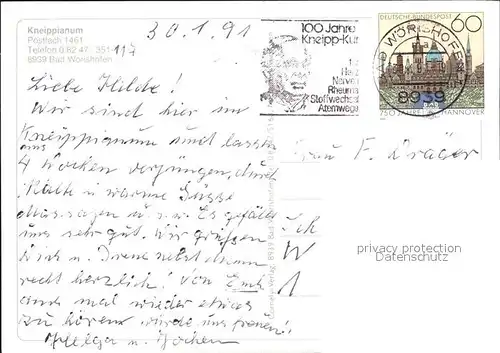 Kneippianum
Postfach 1461
Telefon 0 82 47 - 351-
117
8939 Bad Wörishofen
30.1.91
100 Jahre
Kneipp-Kur
Herz
Nerven
Rheuma
Stoffwechsel
Atemwege
WÖRISHOFEN
8939
DEUTSCHE BUNDESPOST
60
750 JAHRE HANNOVER
Liebe Hilde!
Wir sind hier im
Kneippianum und lassen
uns
4 Wochen verjüngen, durch
Kälte u. warme Güsse
Massagen u.s.w. Es gefällt
uns sehr gut. Wir grüßen
Dich u. Irene nebst Mann
recht herzlich! Von Euch
auch mal wieder etwas
zu hören würde uns freuen!
Helga u. Jochen
Frau F. Dräger
W
1
privacy protection
Datenschutz